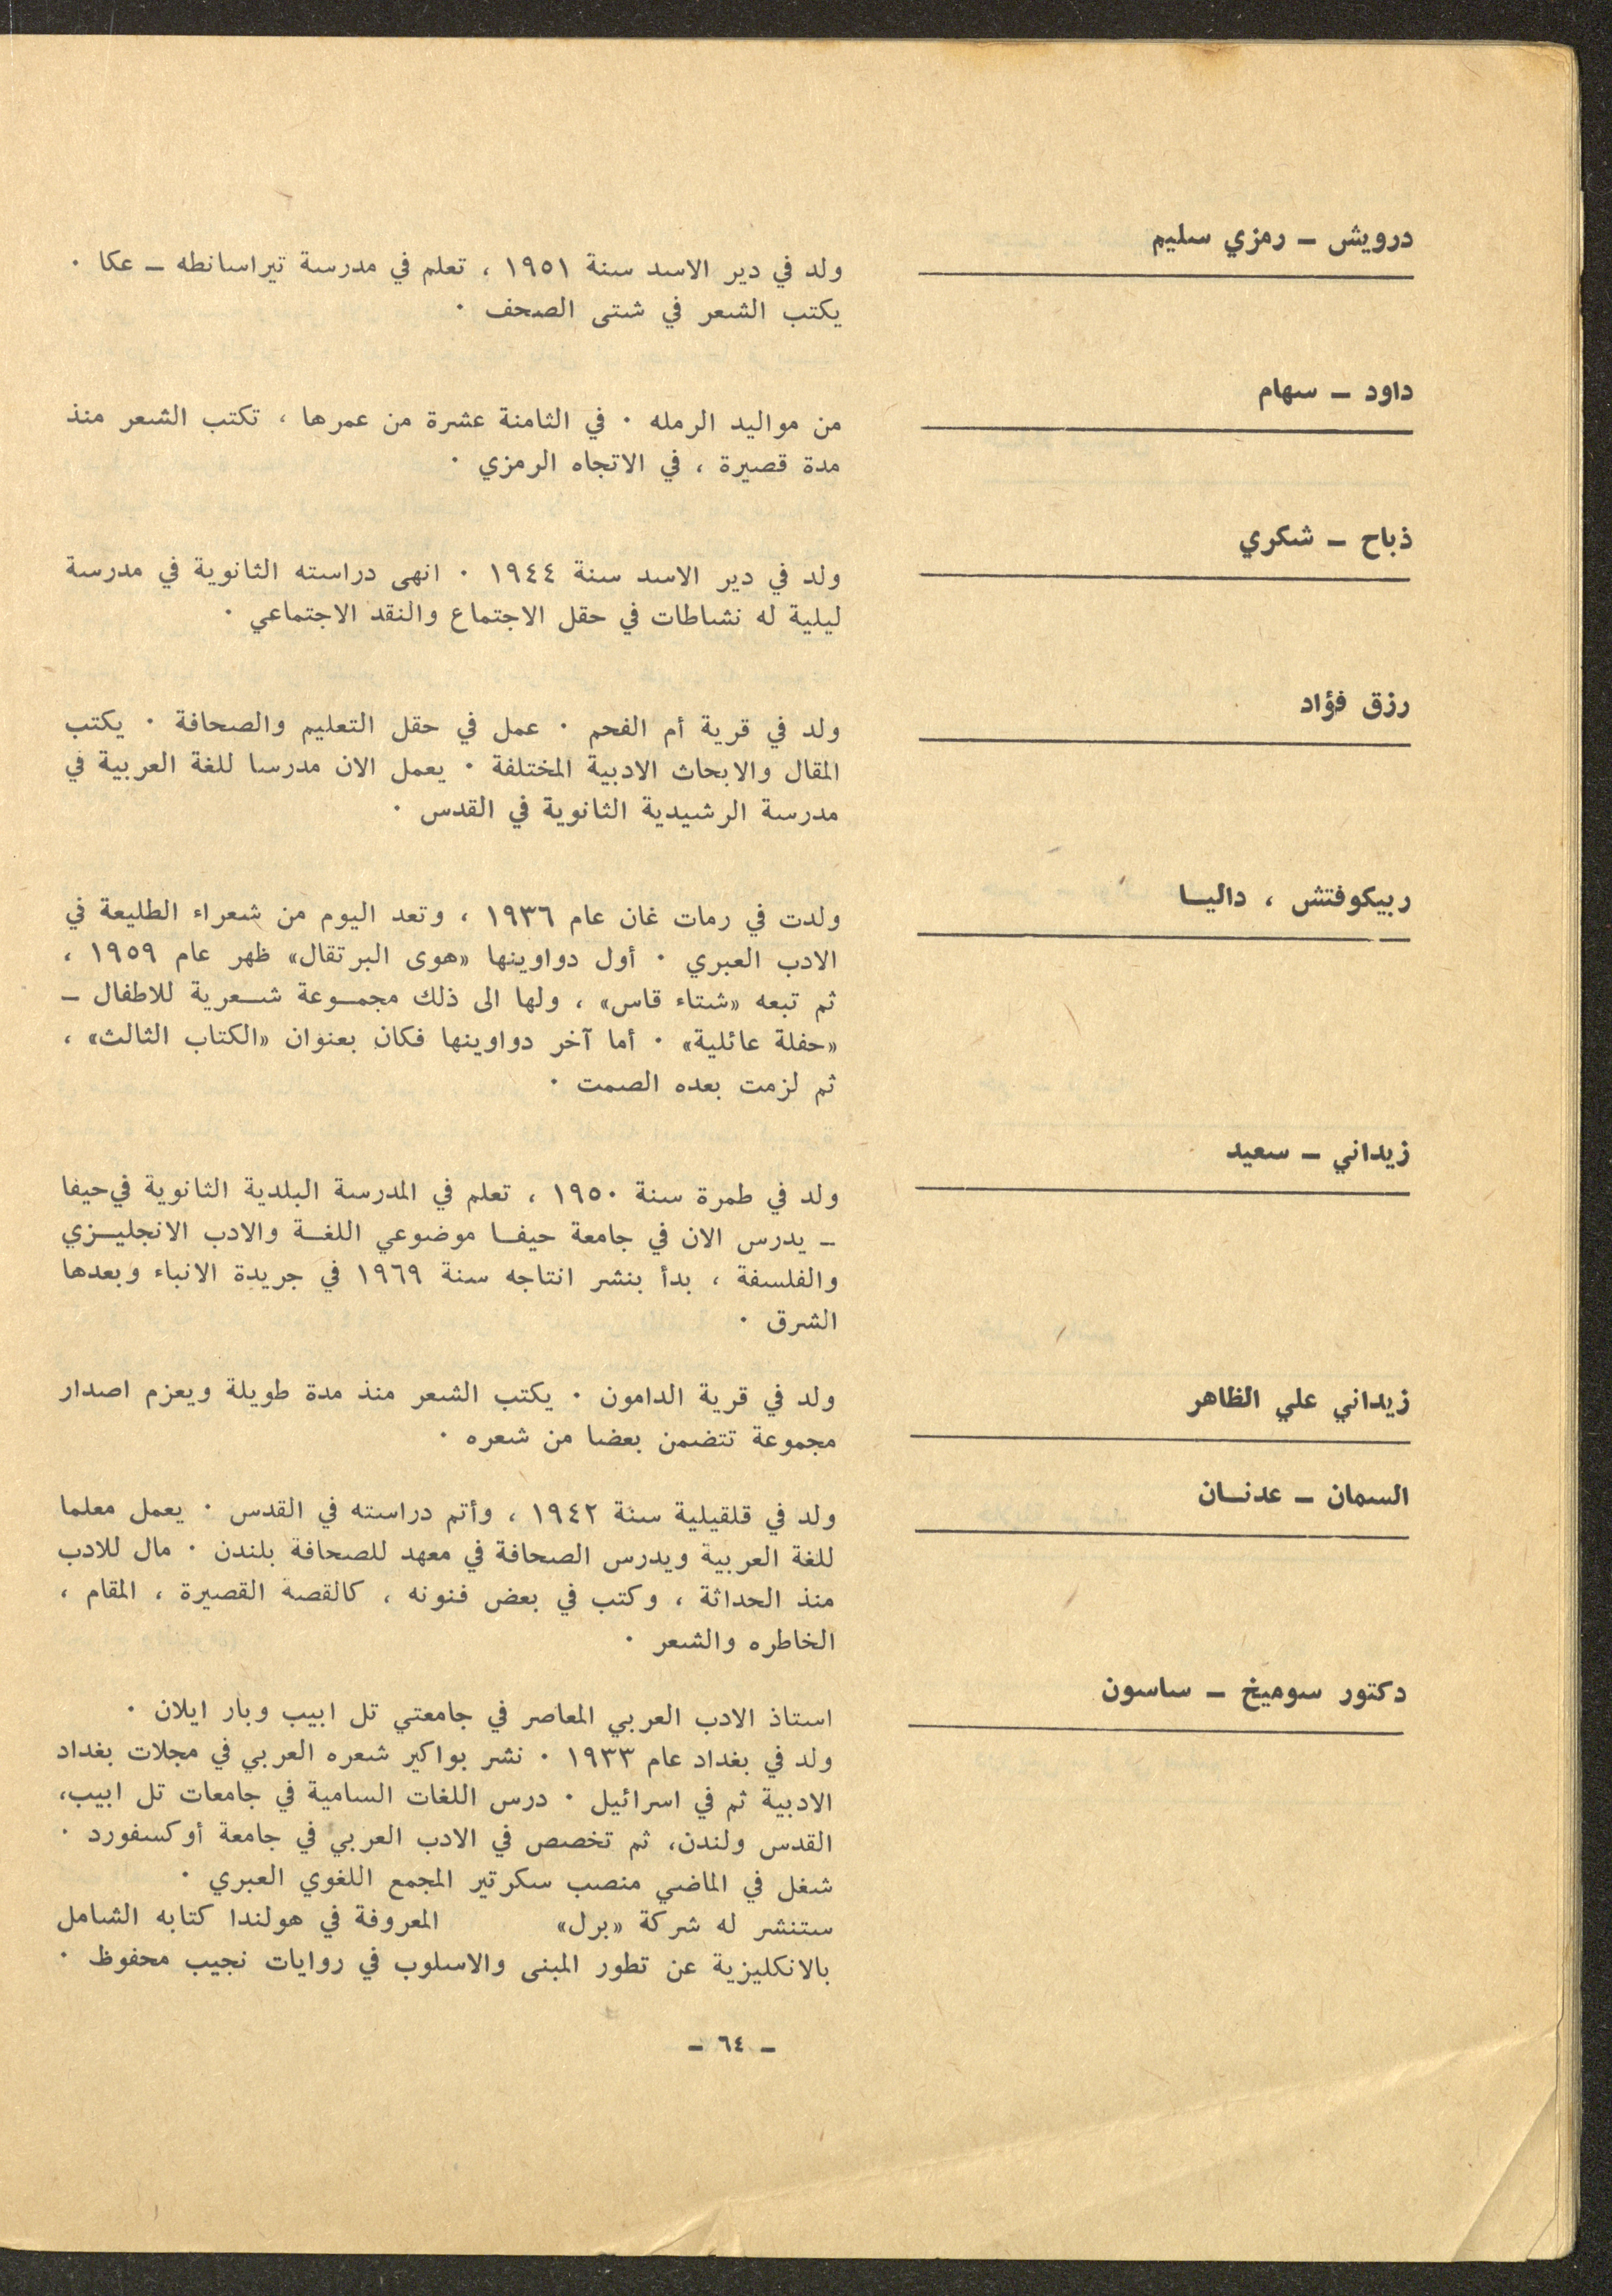 درويش ــ رمزي سليم
ولد في دير الاسد سنة ١٩٥١ ، تعلم في مدرسة تيراسانطه ــ عكا ٠
يكتب الشعر في شتى الصحف ٠
داود ــ سهام
من مواليد الرمله ٠ في الثامنة عشرة من عمرها ، تكتب الشعر منذ
مدة قصيرة ، في الاتجاه الرمزي ٠
ذباح ــ شكري
ولد في دير الاسد سنة ١٩٤٤ ٠ انهى دراسته الثانوية في مدرسة
ليلية له نشاطات في حقل الاجتماع والنقد الاجتماعي ٠
رزق فؤاد
ولد في قرية أم الفحم ٠ عمل في حقل التعليم والصحافة ٠ يكتب
المقال والابحاث الادبية المختلفة ٠ يعمل الان مدرسا للغة العربية في
مدرسة الرشيدية الثانوية في القدس ٠
ربيكوفتش ، داليــا
ولدت في رمات غان عام ١٩٣٦ ، وتعد اليوم من شعراء الطليعة في
الادب العبري ٠ أول دواوينها «هوى البرتقال» ظهر عام ١٩٥٩ ،
ثم تبعه «شتاء قاس» ، ولها الى ذلك مجمــوعة شــعرية للاطفال ــ
«حفلة عائلية» ٠ أما آخر دواوينها فكان بعنوان «الكتاب الثالث» ،
ثم لزمت بعده الصمت ٠
زيداني ــ سعيد
ولد في طمرة سنة ١٩٥٠ ، تعلم في المدرسة البلدية الثانوية في حيفا
ــ يدرس الان في جامعة حيفــا موضوعي اللغــة والادب الانجليــزي
والفلسفة ، بدأ بنشر انتاجه سنة ١٩٦٩ في جريدة الانباء وبعدها
الشرق ٠
زيداني علي الظاهر
ولد في قرية الدامون ٠ يكتب الشعر منذ مدة طويلة ويعزم اصدار
مجموعة تتضمن بعضا من شعره ٠
السمان ــ عدنــان
ولد في قلقيلية سنة ١٩٤٢ ، وأتم دراسته في القدس ٠ يعمل معلما
للغة العربية ويدرس الصحافة في معهد للصحافة بلندن ٠ مال للادب
منذ الحداثة ، وكتب في بعض فنونه ، كالقصة القصيرة ، المقام ،
الخاطره والشعر ٠
دكتور سوميخ ــ ساسون
استاذ الادب العربي المعاصر في جامعتي تل ابيب وبار ايلان ٠
ولد في بغداد عام ١٩٣٣ ٠ نشر بواكير شعره العربي في مجلات بغداد
الادبية ثم في اسرائيل ٠ درس اللغات السامية في جامعات تل ابيب،
القدس ولندن، ثم تخصص في الادب العربي في جامعة أوكسفورد ٠
شغل في الماضي منصب سكرتير المجمع اللغوي العبري ٠
ستنشر له شركة «برل» المعروفة في هولندا كتابه الشامل
بالانكليزية عن تطور المبنى والاسلوب في روايات نجيب محفوظ ٠
ــ ٦٤ ــ